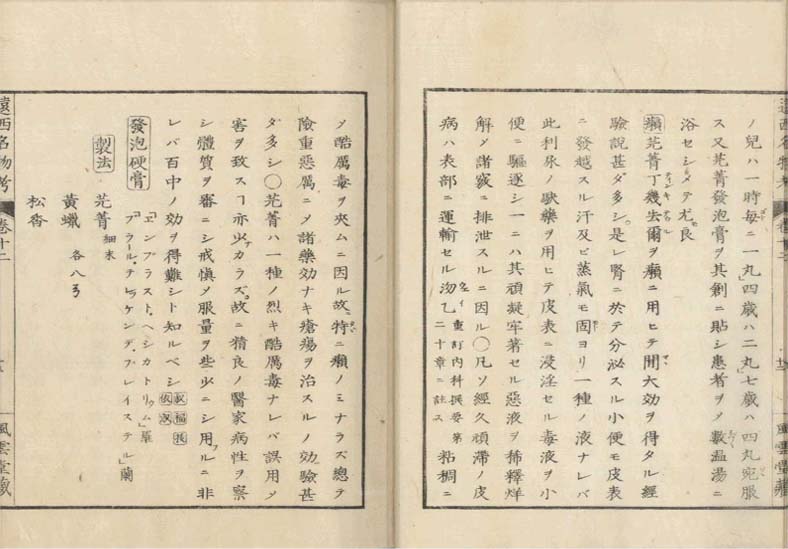 ノ兒ハ一時毎ニ一丸」四歳ハ二丸」七歳ハ四丸宛服
ス又芫菁發泡膏ヲ其創ニ貼シ患者ヲメ數温湯ニ
浴セシメテ尤良
癩 芫菁丁幾去爾ヲ癩ニ用ヒテ間大効ヲ得タル經
驗説甚ダ多シ。是レ腎ニ於テ分泌スル小便モ皮表
ニ發越スル汗及ビ蒸氣モ固ヨリ一種ノ液ナレバ
此利尿ノ藥ヲ用ヒテ皮表ニ浸淫セル毒液ヲ小
便ニ驅逐シ一ニハ其頑凝牢著セル惡液ヲ稀釋烊
解メ諸竅ニ排泄スルニ因ル○凡ソ經久頑滯ノ皮
病ハ表部ニ運輸セル沕乙 重訂内科撰要第二十章ニ註ス 粘稠ニ
風雲堂藏
遠西名物考 卷十二
風雲堂藏
メ酷厲毒ヲ夾ムニ因ル故ニ特ニ癩ノミナラズ總テ
險重惡厲ニメ諸藥効ナキ瘡瘍ヲ治スルノ効驗甚
ダ多シ○芫菁ハ一種ノ烈キ酷厲毒ナレバ誤用メ
害ヲ致スヿ亦少カラズ故ニ精良ノ醫家病性ヲ察
シ體質ヲ審ニシ戒愼メ服量ヲ些少ニシ用ルニ非
レバ百中ノ効ヲ得難シト知ルベシ
發泡硬膏 「ヱンプラスト、ヘシカトリウム」羅 「プラール、テレッケンデ、プレイステル」蘭
製法
芫菁 細末
黄蠟 各八
松香